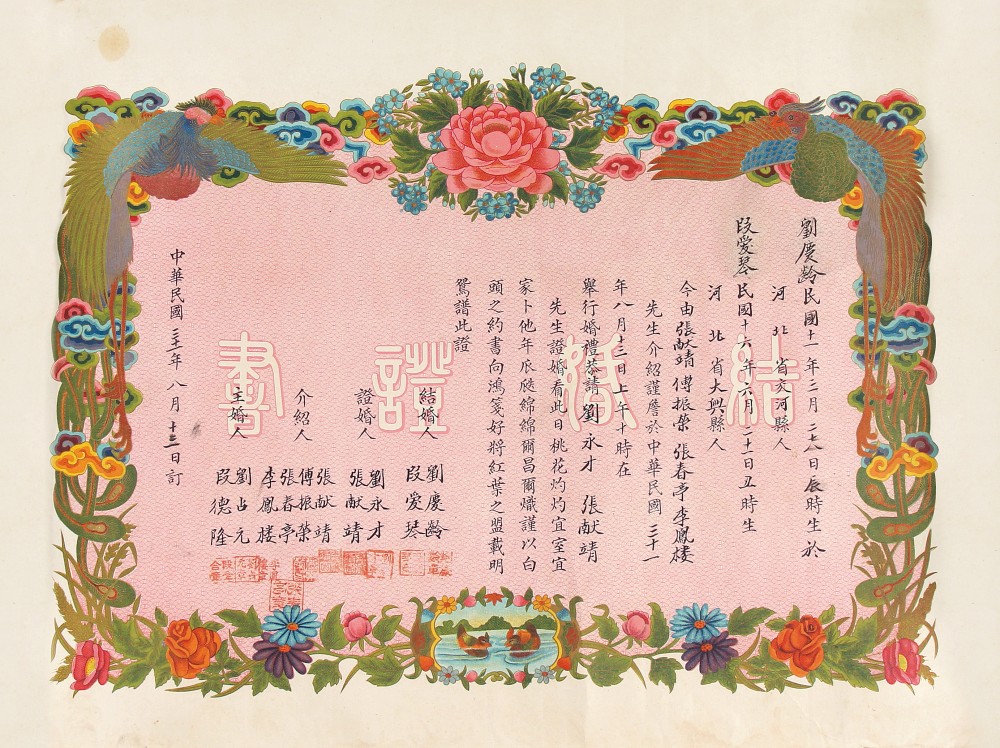 結婚證書
劉慶齡民國十一年二月二八日辰時生於
河北省交河縣人
段愛琴民國十六年六月二十一日丑時生
河北省大興縣人
今由張献靖傅振榮張春亭李鳳樓
先生介紹謹詹於中華民國三十一
年八月十三日上午十時在
舉行婚禮恭請劉永才張献靖
先生證婚看此日桃花灼灼宜室宜
家卜他年瓜瓞綿綿爾昌爾熾謹以白
頭之約書向鴻箋好將紅葉之盟載明
鴛譜此證
結婚人劉慶齡
段愛琴
證婚人劉永才
張献靖
介紹人張献靖
傅振榮
張春亭
李鳳樓
主婚人劉占元
段德隆
中華民國三十一年八月十三日訂